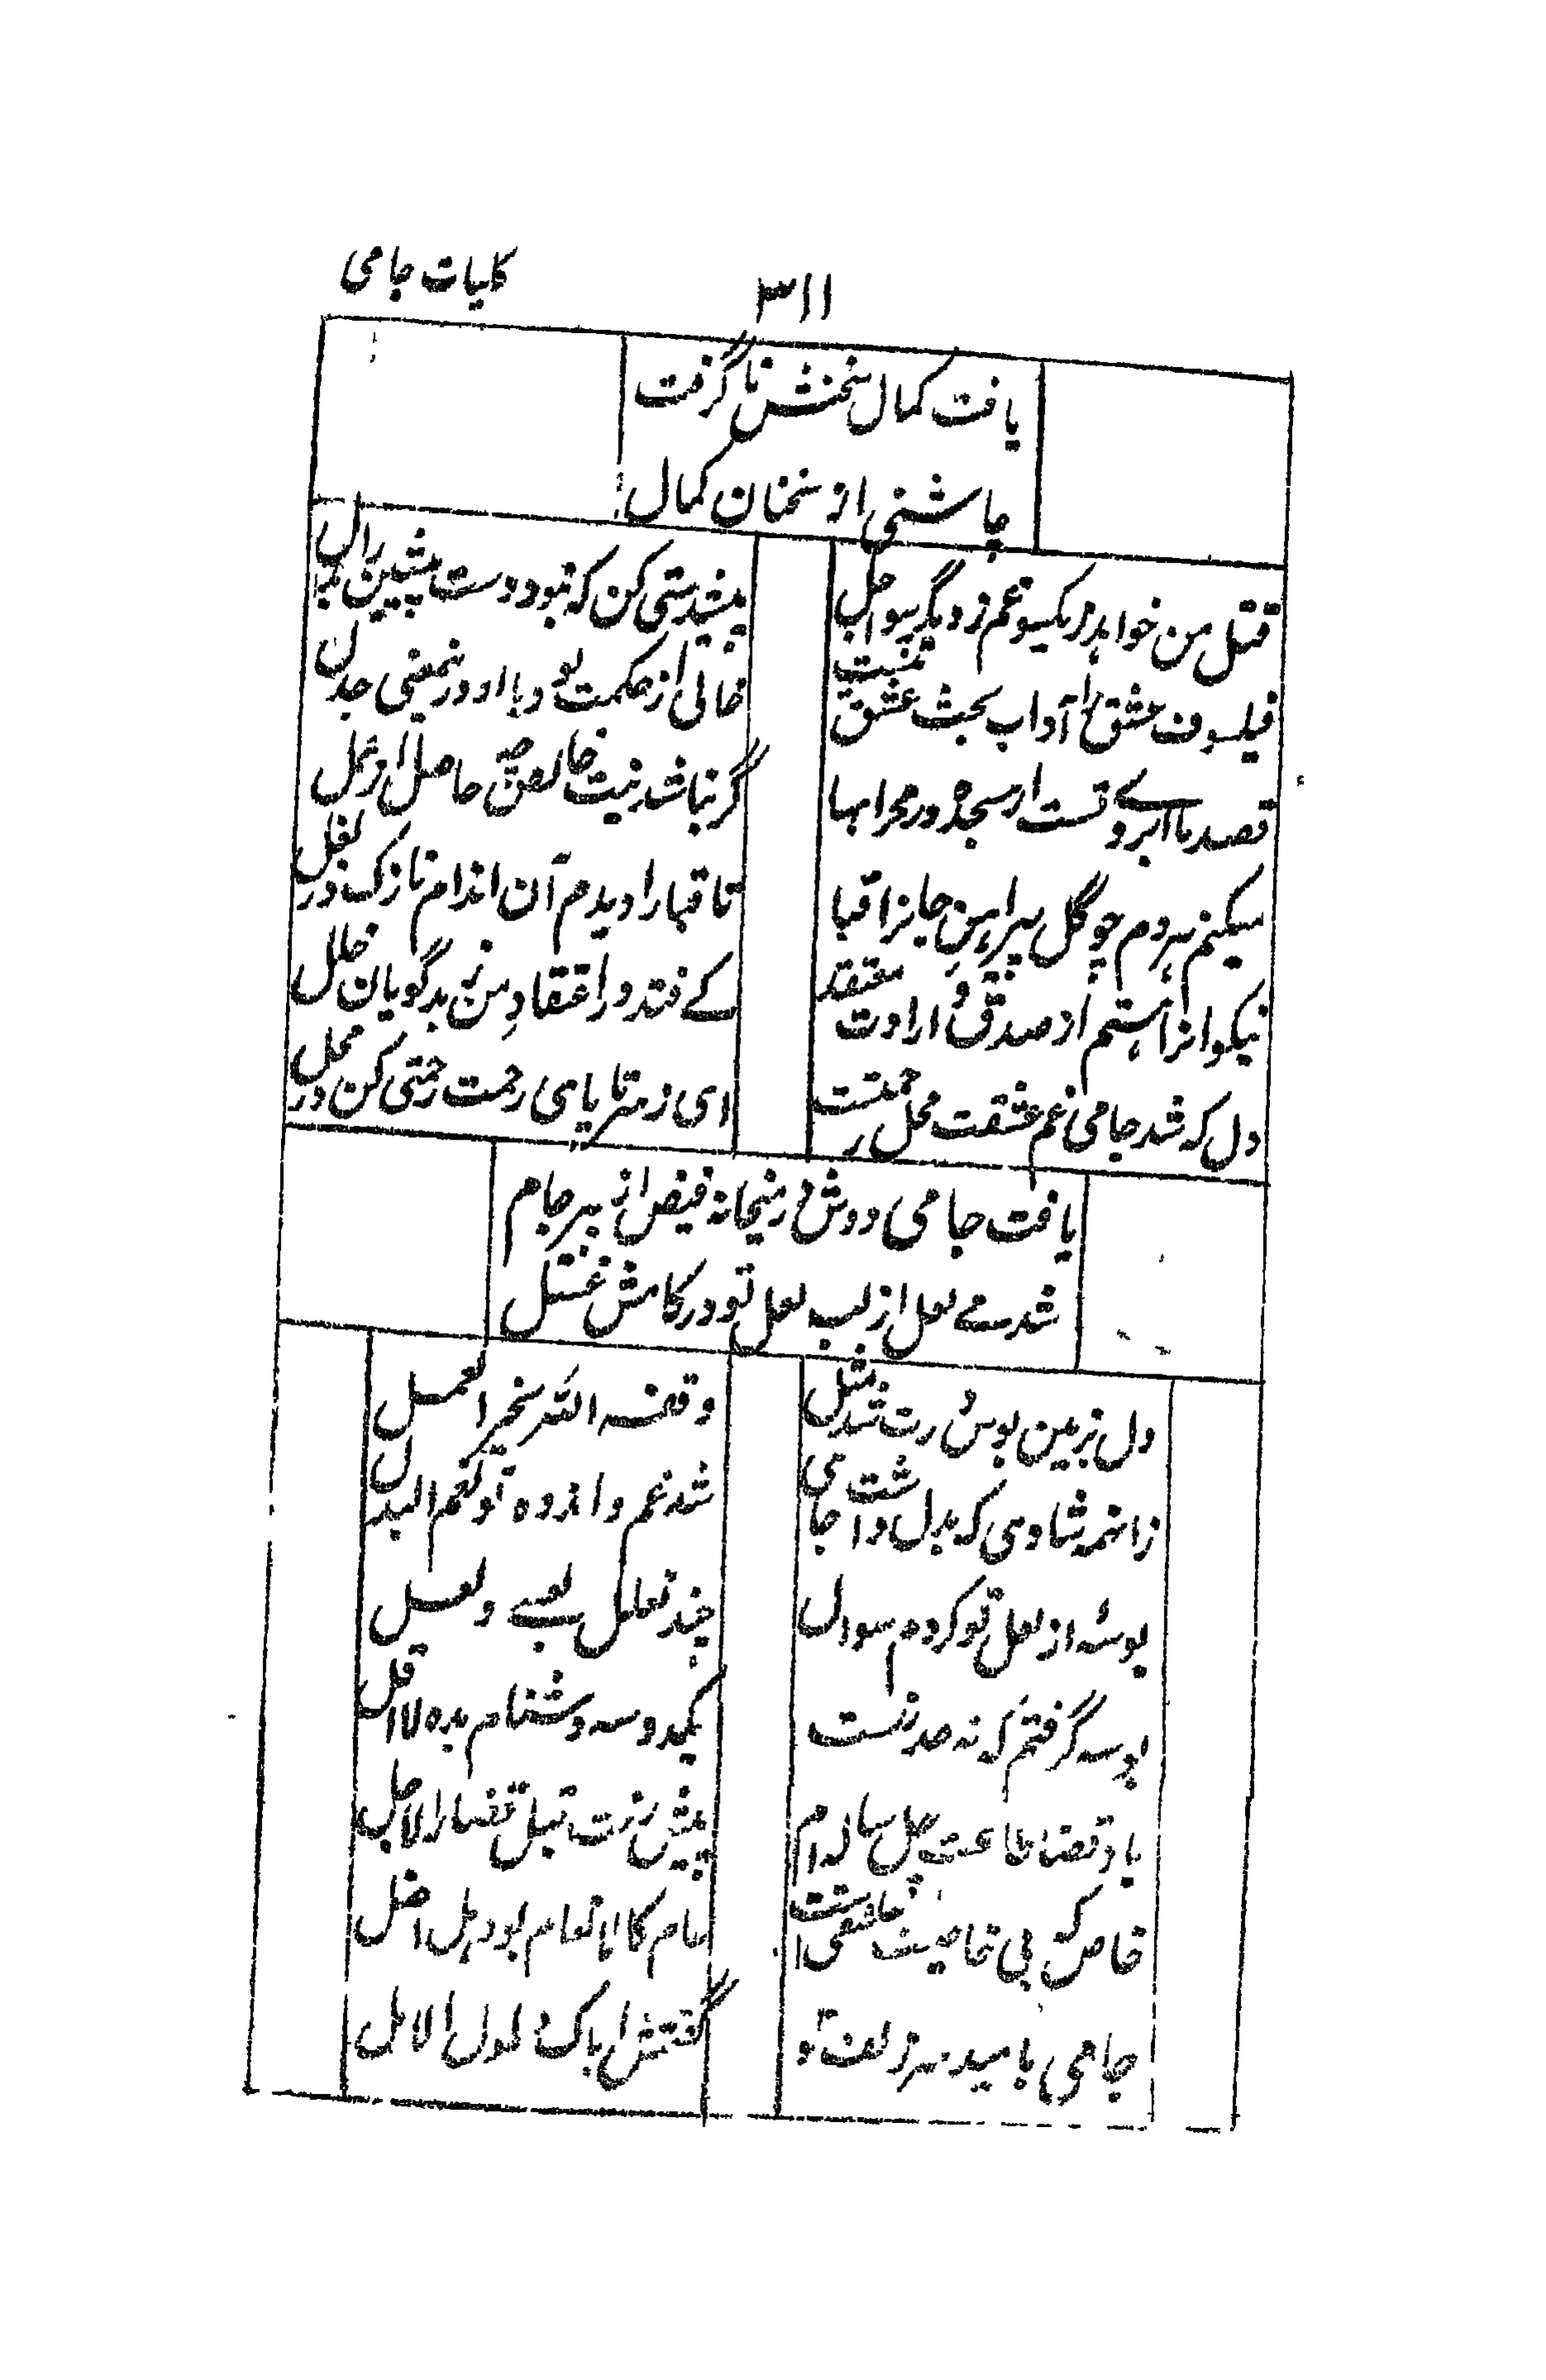 کلیات جامی
۳۱۱
یافت کمال سخنش تا گرفت
چاشنی از سخنان کمال
قتل من خواهد ز یکسو غم ز دیگر سو اجل
پیشدستی کن که نبود دست پیشین را بدل
فیلسوف عشق را آداب بحث عشق نیست
خالی از حکمت بود با او درینمعنی جدل
قصد ما ابروے تست از سجده در محرابها
گر نباشد نیت خالص چه حاصل از عمل
میکنم هر دم چو گل پیراهن جانرا قبا
تا قبا را دیدم آن اندام نازک در بغل
نیکوانرا هستم از صدق و ارادت معتقد
کے فتد در اعتقاد من ز بدگویان خلل
دل که شد جامی ز غم عشقت محل رحمتست
ای ز سر تا پای رحمت رحمتی کن در محل
یافت جامی دوش در میخانه فیض از پیر جام
شد مے لعل از لب لعل تو در کامش عسل
دل بزمین بوس درت شد مثل
وفقه الله لخیر العمل
زانهمه شادی که بدل داشت جای
شد غم و اندوه تو نعم البدل
بوسۀ از لعل تو کردم سوال
چند تعلل بعسے و لعل
بوسه گرفتم که نه حد منست
یکدو سه دشنام بده لااقل
باد قضا طاعت چل ساله ام
پیش رخت قبل قضاء الاجل
خاص که بی خاصیت عاشقی است
عام کالانعام بود بل اضل
جامی بامید سر زلف تو
گفتمش ایاک و طول الامل